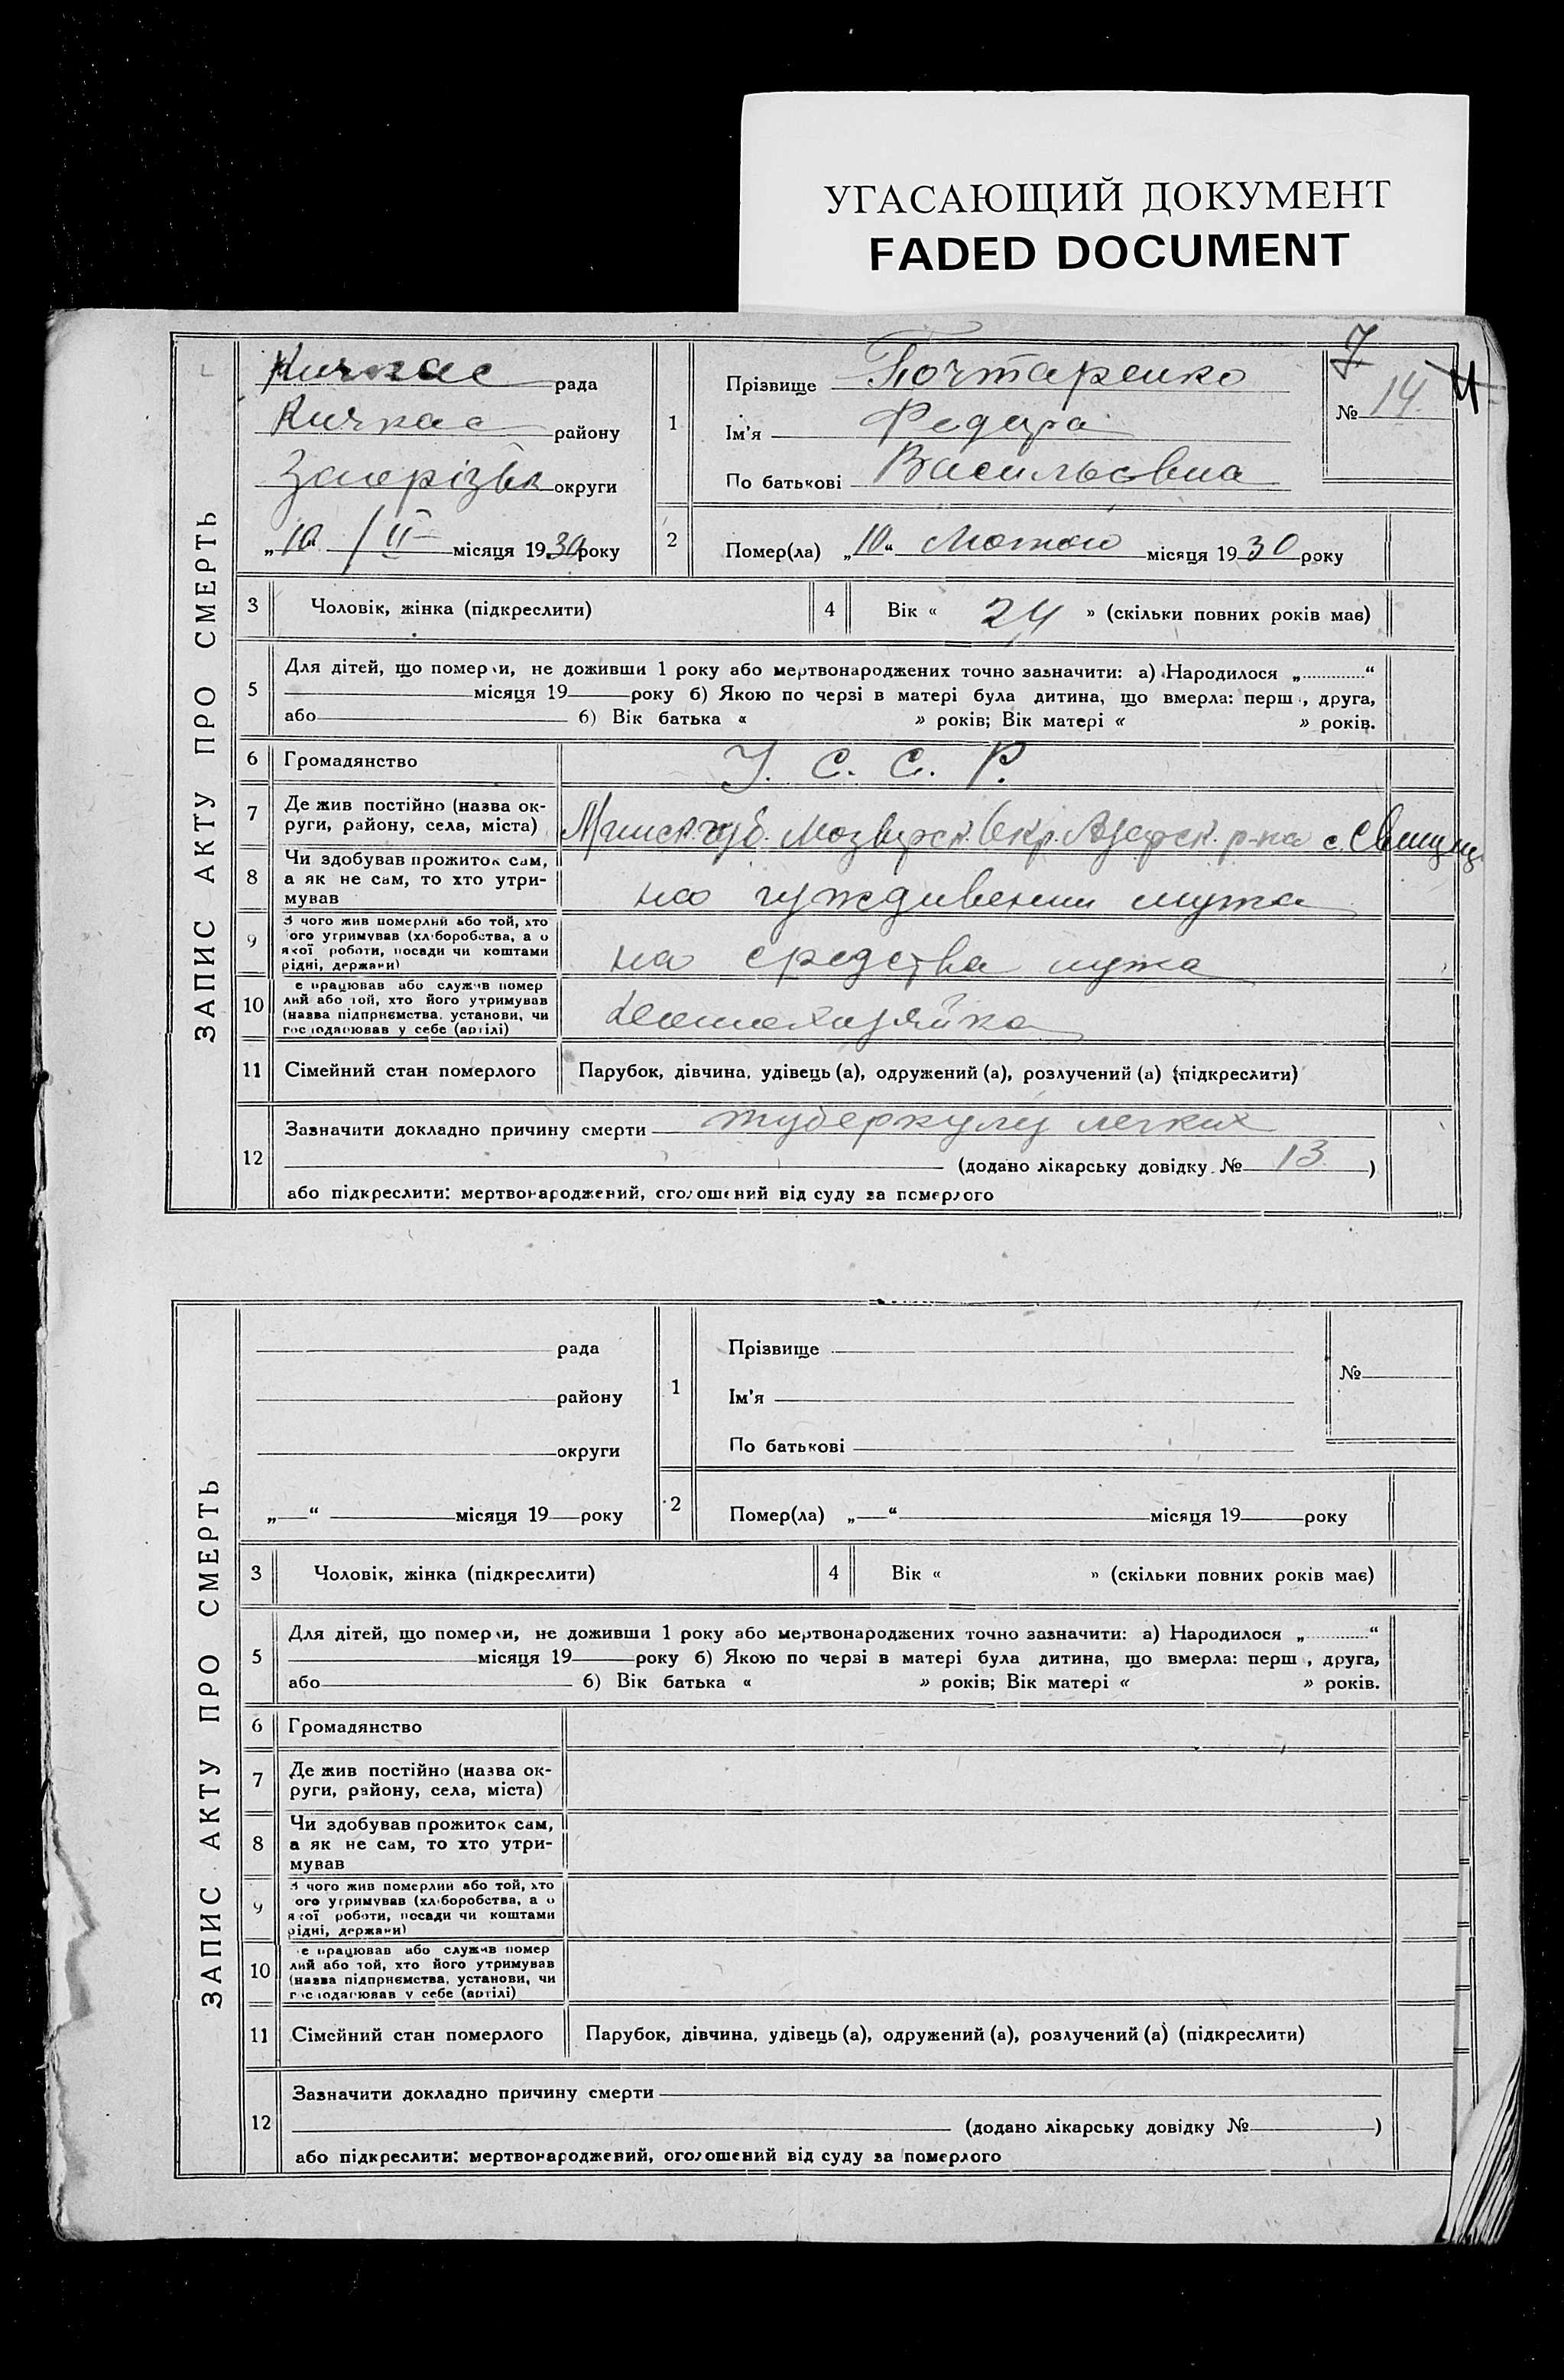 УГАСАЮЩИЙ ДОКУМЕНТ
FADED DOCUMENT
ЗАПИС АКТУ ПРО СМЕРТЬ
Кичкас рада
Кичкас району
Запорізьк округи
„10“ / II місяця 1930 року
1
Прізвище Почтаренко
Ім'я Федора
По батькові Васильовна
7
№ 14
2
Помер(ла) „10“ Лютого місяця 1930 року
3 Чоловік, жінка (підкреслити)
4 Вік « 24 » (скільки повних років має)
5
Для дітей, що померли, не доживши 1 року або мертвонароджених точно зазначити: а) Народилося „ “
місяця 19 року б) Якою по черзі в матері була дитина, що вмерла: перш , друга,
або б) Вік батька « » років; Вік матері « » років.
6 Громадянство У. С. С. Р.
7
Де жив постійно (назва ок-
руги, району, села, міста) Минск. губ. Мозырск. Окр. р-на с.
8
Чи здобував прожиток сам,
а як не сам, то хто утри-
мував
на иждивении мужа
9
З чого жив померлий або той, хто
ого утримував (хліборобства, а о
якої роботи, посади чи коштами
рідні, держави)
на средства мужа
10
е працював або служив помер
лий або той, хто його утримував
(назва підприємства, установи, чи
господарював у себе (артілі)
Домохазяйка
11 Сімейний стан померлого Парубок, дівчина, удівець (а), одружений (а), розлучений (а) (підкреслити)
12
Зазначити докладно причину смерти туберкулез легких
(додано лікарську довідку № 13 )
або підкреслити: мертвонароджений, оголошений від суду за померлого
ЗАПИС АКТУ ПРО СМЕРТЬ
рада
району
округи
„ “ місяця 19 року
1
Прізвище
Ім'я
По батькові
№
2
Помер(ла) „ “ місяця 19 року
3 Чоловік, жінка (підкреслити)
4 Вік « » (скільки повних років має)
5
Для дітей, що померли, не доживши 1 року або мертвонароджених точно зазначити: а) Народилося „ “
місяця 19 року б) Якою по черзі в матері була дитина, що вмерла: перш , друга,
або б) Вік батька « » років; Вік матері « » років.
6 Громадянство
7
Де жив постійно (назва ок-
руги, району, села, міста)
8
Чи здобував прожиток сам,
а як не сам, то хто утри-
мував
9
З чого жив померлий або той, хто
ого утримував (хліборобства, а о
якої роботи, посади чи коштами
рідні, держави)
10
е працював або служив помер
лий або той, хто його утримував
(назва підприємства, установи, чи
господарював у себе (артілі)
11 Сімейний стан померлого Парубок, дівчина, удівець (а), одружений (а), розлучений (а) (підкреслити)
12
Зазначити докладно причину смерти
(додано лікарську довідку № )
або підкреслити: мертвонароджений, оголошений від суду за померлого